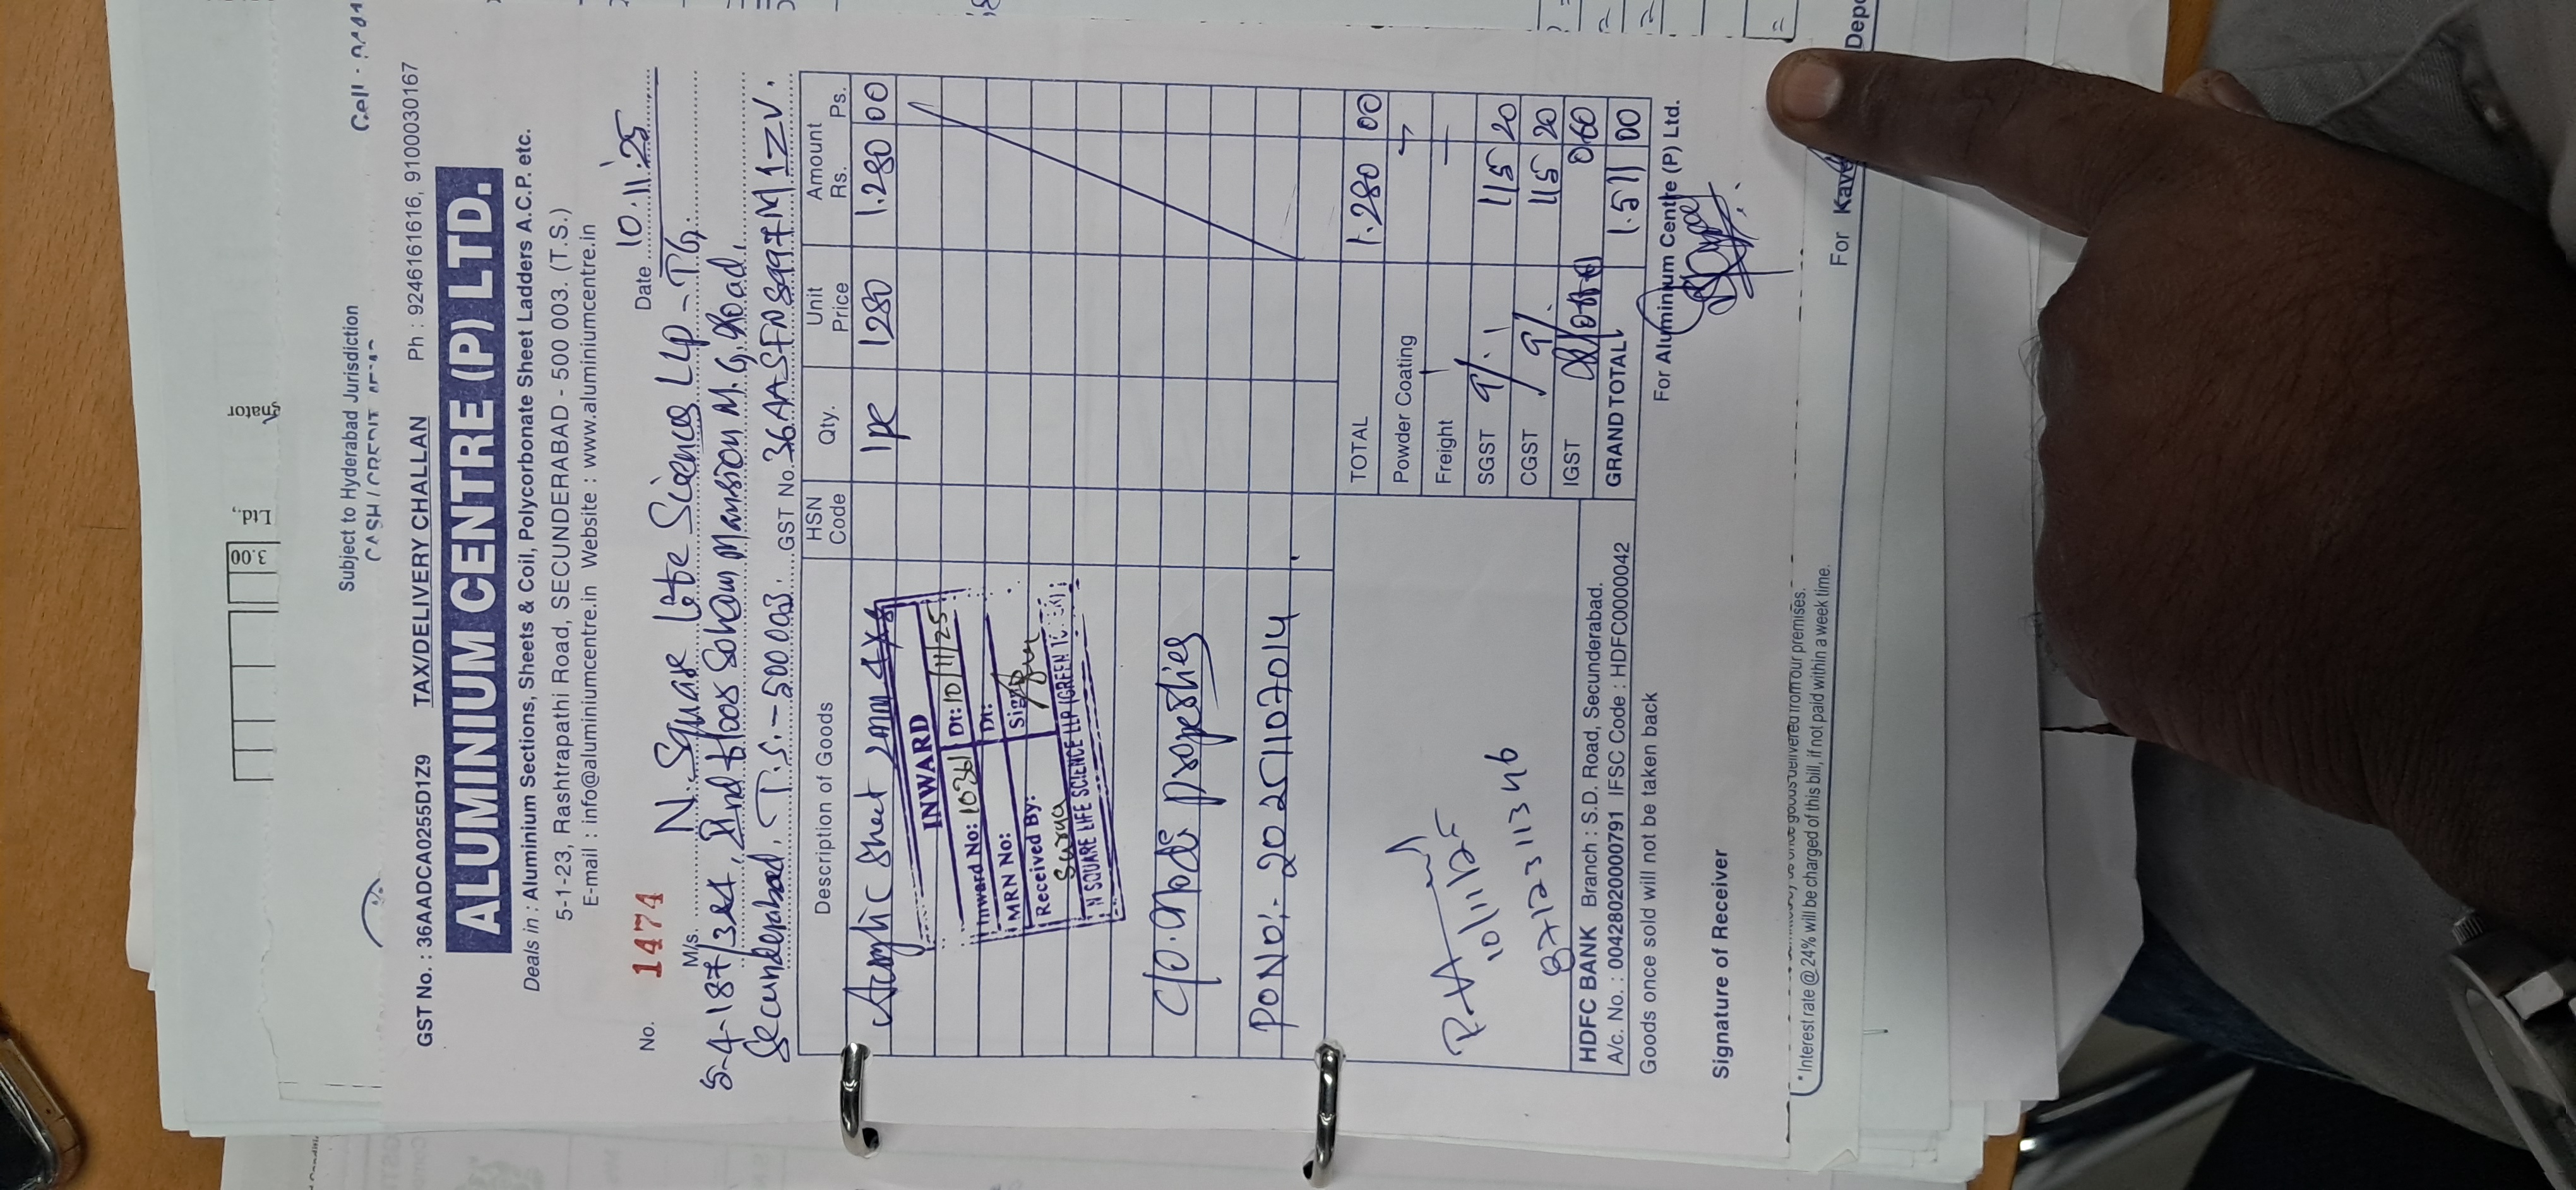 Subject to Hyderabad Jurisdiction
GST No. : 36AADCA0255D1Z9 TAX/DELIVERY CHALLAN Ph : 9246161616, 9100030167
ALUMINIUM CENTRE (P) LTD.
Deals in : Aluminium Sections, Sheets & Coil, Polycorbonate Sheet Ladders A.C.P. etc.
5-1-23, Rashtrapathi Road, SECUNDERABAD - 500 003. (T.S.)
E-mail : info@aluminiumcentre.in Website : www.aluminiumcentre.in
No. 1474 Date 10.11.25
M/s. N. Square Life Sciences LLP - TG,
5-4-187/3&4, IInd floor Soham Mansion M.G. Road,
Secunderabad, T.S. - 500003. GST No. 36AASFN8997M1ZV.
Description of Goods HSN Code Qty. Unit Price Amount Rs. Ps.
Acrylic Sheet 2mm 1 pc 1280 1.280 00
INWARD
Inward No: 1036 Dt: 10/11/25
MRN No: Dt:
Received By: Sign
Surya
N SQUARE LIFE SCIENCE LLP
C/o. Modi properties
PO No:- 20251107014
TOTAL 1.280 00
Powder Coating
Freight
SGST 9% 115 20
CGST 9% 115 20
IGST 0 60
GRAND TOTAL 1.511 00
10/11/25
HDFC BANK Branch : S.D. Road, Secunderabad.
A/c. No. : 00428020000791 IFSC Code : HDFC0000042
Goods once sold will not be taken back
For Aluminium Centre (P) Ltd.
Signature of Receiver
* Interest rate @ 24% will be charged of this bill, if not paid within a week time.
For Kave
Depo
Ltd.,
3.00